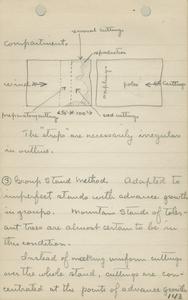 removal cuttings
compartment.
reproduction
wind
poles
cuttings
450'
100'
preparatory cutting
seed cuttings
The "strips" are necessarily irregular
in outline.
③ Group Stand Method. Adapted to
imperfect stands with advance growth
in groups. Mountain Stands of toler-
ant trees are almost certain to be in
the condition.
Instead of making uniform cuttings
over the whole stand, cuttings are con-
centrated at the points of advance growth